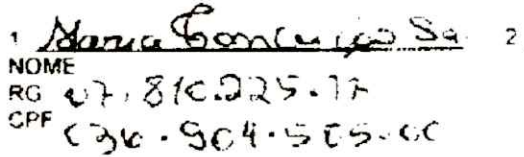 1 Maria Conceição Sa 2
NOME
RG 07.810.225.17
CPF 036.904.505.00